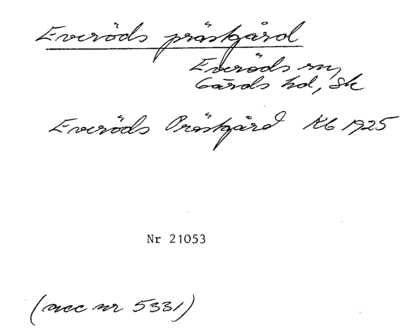 Everöds prästgård
Everöds sn,
Gärds hd, Sk
Everöds Prästgård Kb 1925
Nr 21053
(acc nr 5331)